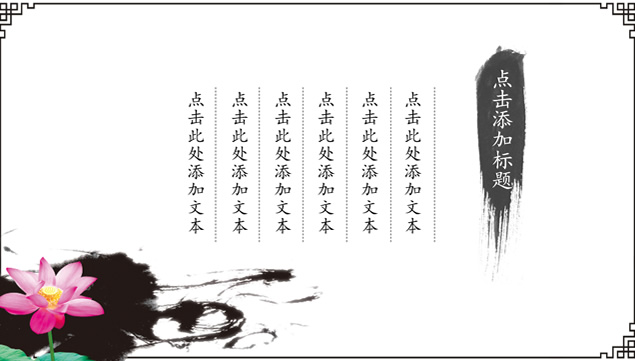 点击添加标题
点击此处添加文本
点击此处添加文本
点击此处添加文本
点击此处添加文本
点击此处添加文本
点击此处添加文本